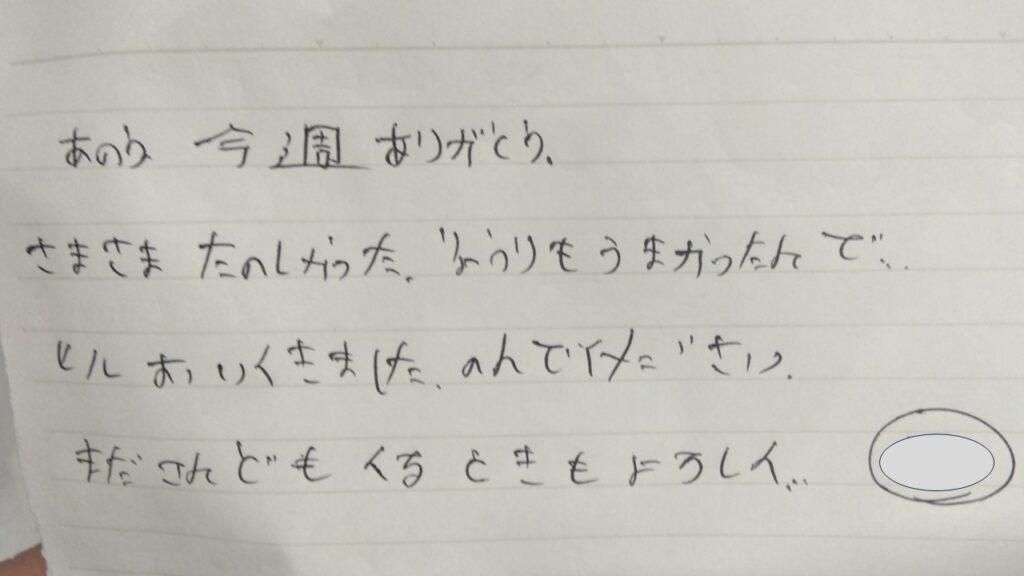 あのう 今週 ありがとう.
さまさま たのしかった. りょうりも うまかったんで...
ビル おいくきました. のんで ください.
まだ こんども くる ときも よろしく...